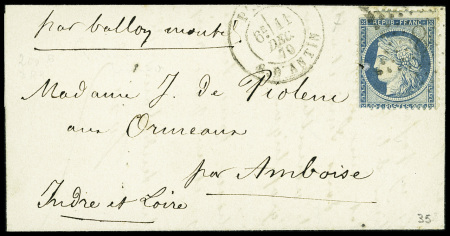 par ballon monté
6E 11
DEC.
70
ANTIN
REPUB. FRANC.
Madame J. de Violene
aux Ormeaux
par Amboise
Indre et Loire
35